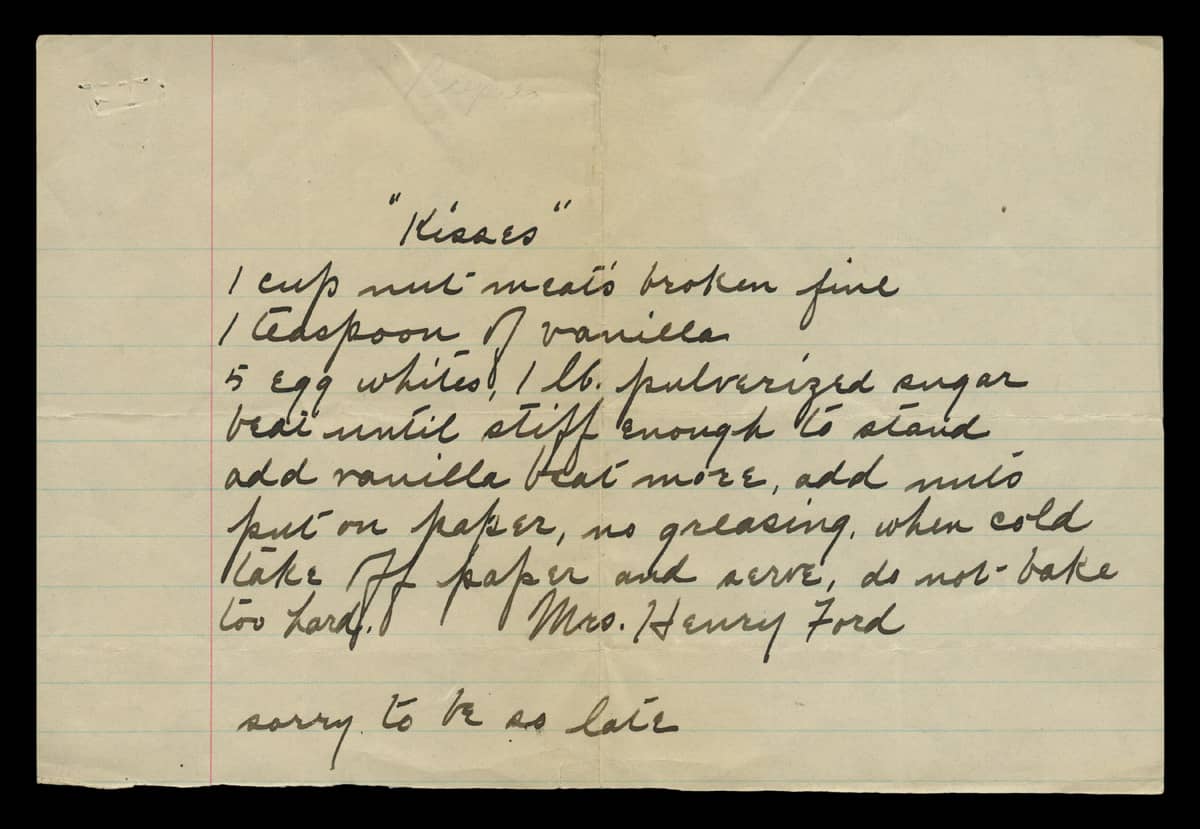 "Kisses"
1 cup nut meats broken fine
1 teaspoon of vanilla
5 egg whites, 1 lb. pulverized sugar
beat until stiff enough to stand
add vanilla beat more, add nuts
put on paper, no greasing, when cold
take off paper and serve, do not bake
too hard. Mrs. Henry Ford
sorry to be so late